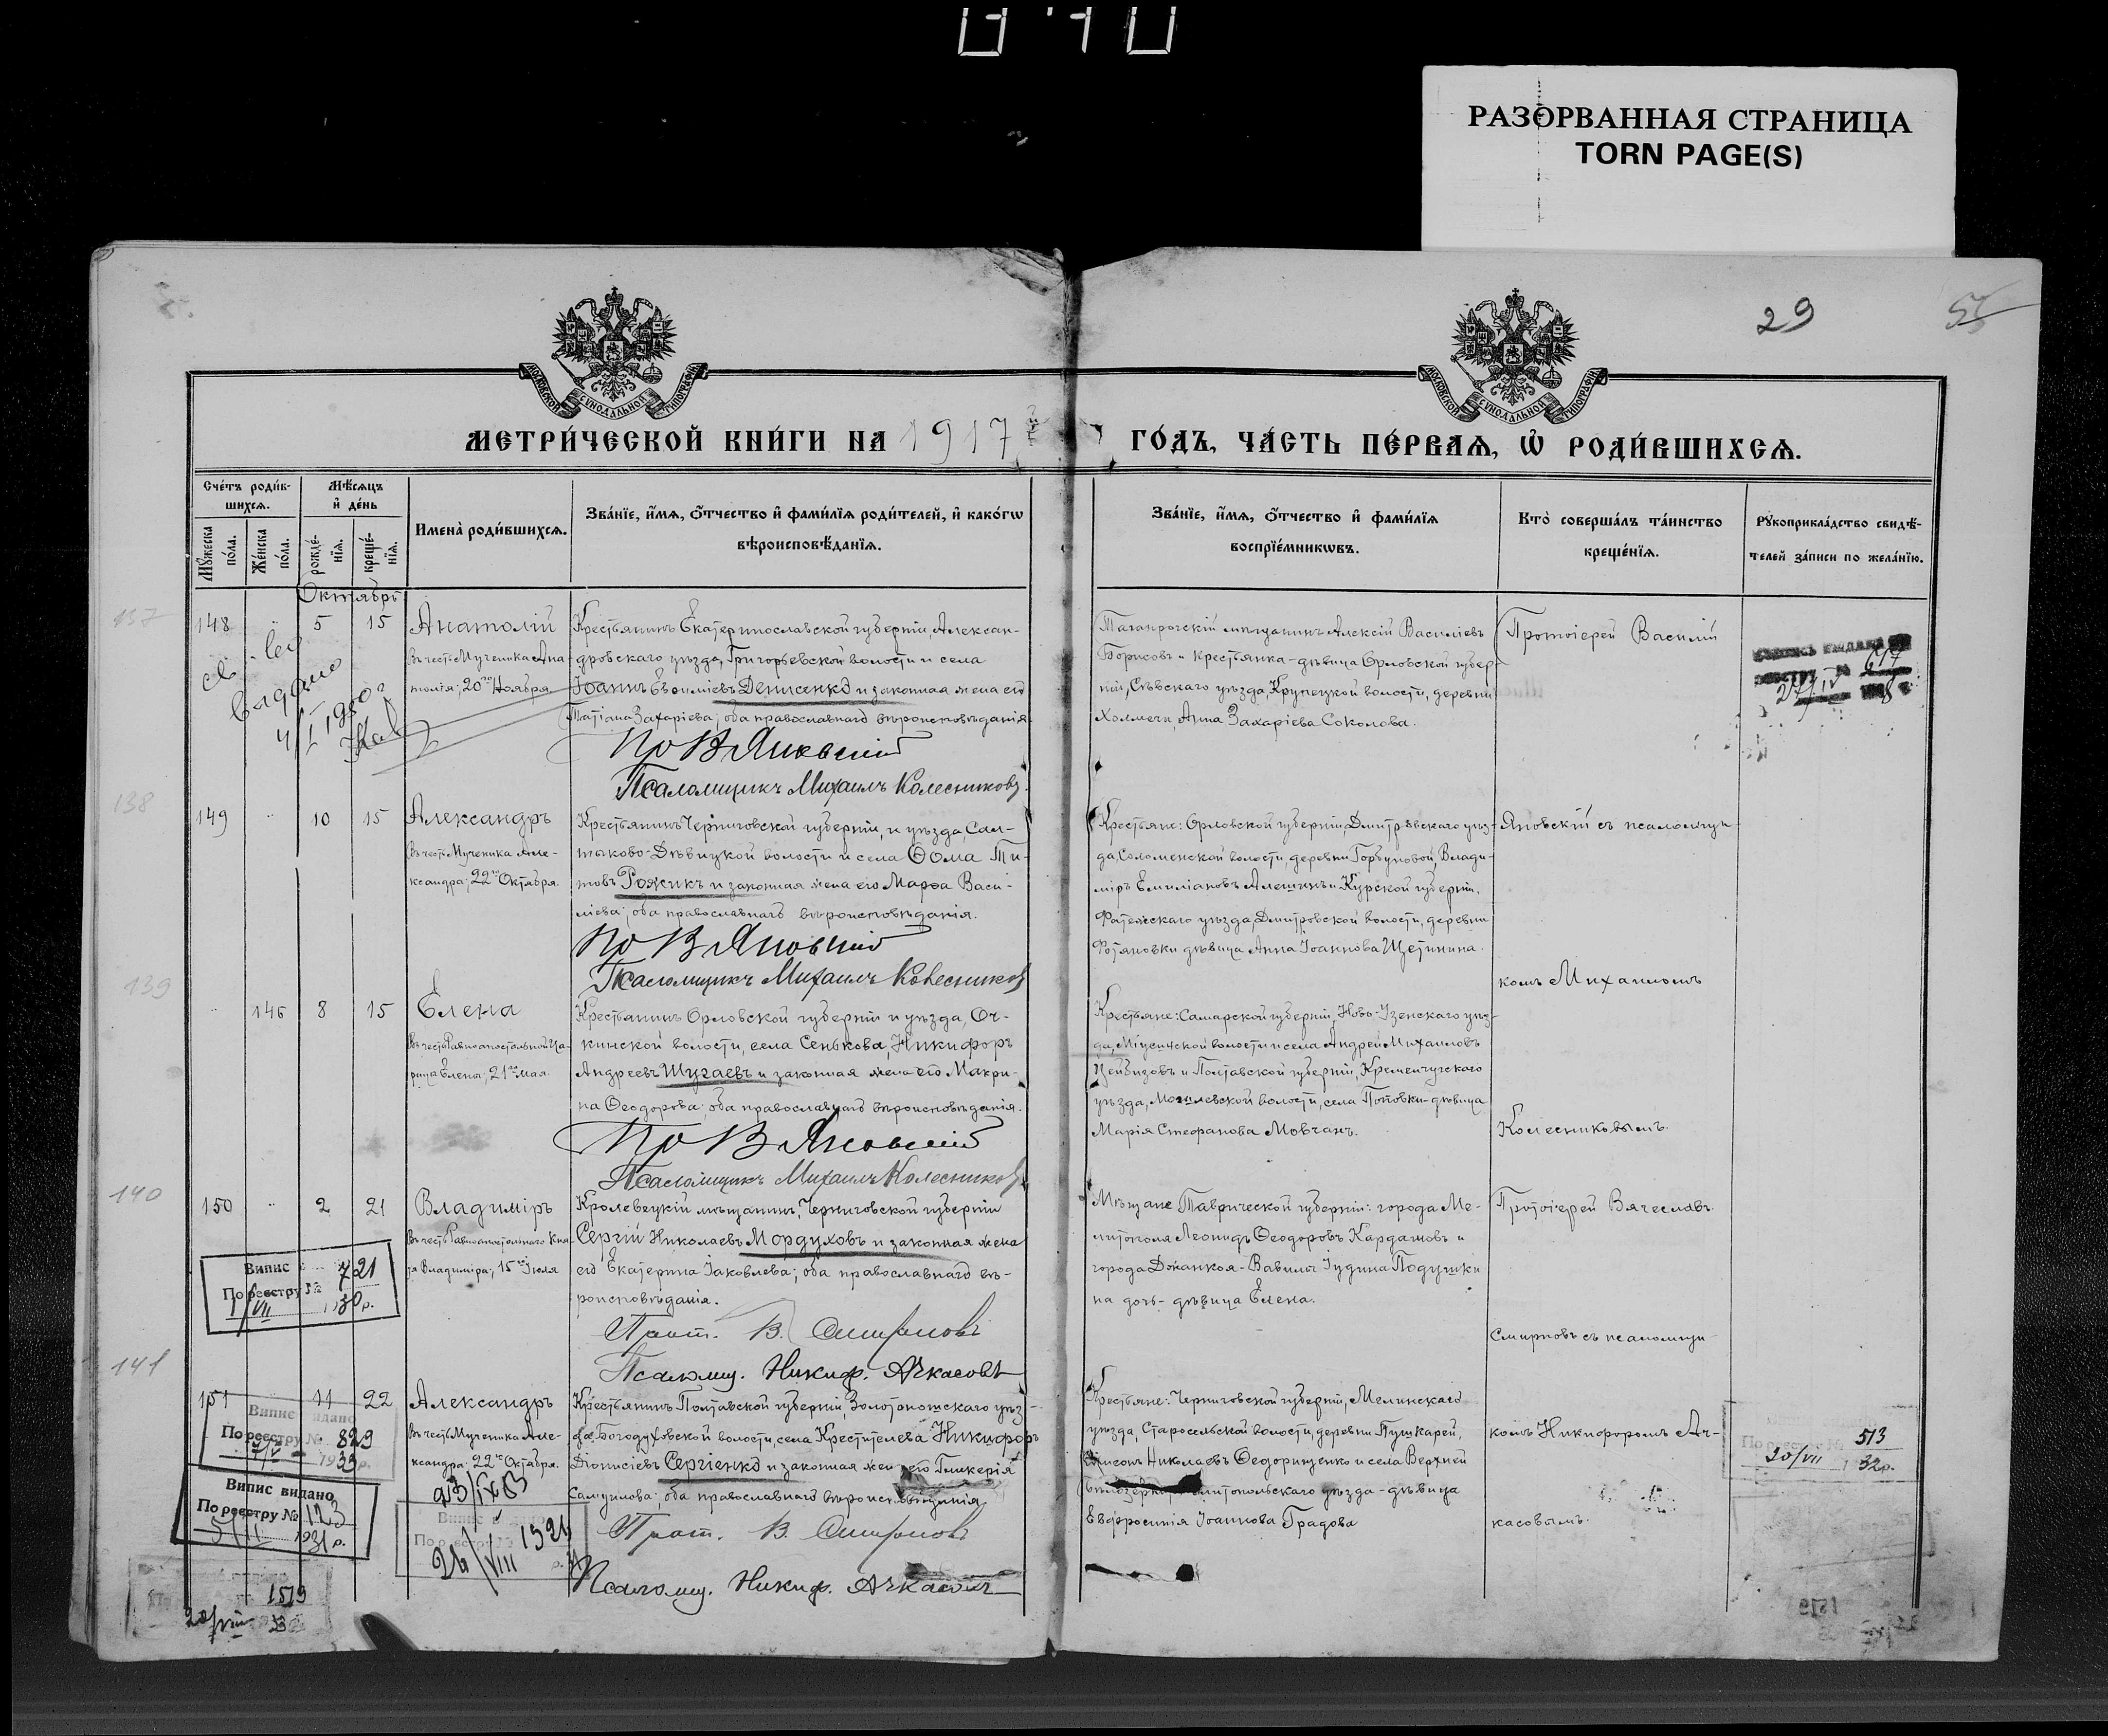 РАЗОРВАННАЯ СТРАНИЦА
TORN PAGE(S)
29
МОСКОВСКОЙ СѴНОДАЛЬНОЙ ТИПОГРАФІИ
МОСКОВСКОЙ СѴНОДАЛЬНОЙ ТИПОГРАФІИ
МЕТРИ́ЧЕСКОЙ КНИ́ГИ НА 1917
ГО́ДЪ, ЧА́СТЬ ПЕ́РВАЯ, Ѿ РОДИ́ВШИХСЯ.
Сче́тъ роди́в-
шихся.
Мѣ́сяцъ
и҆ де́нь
Мꙋ́жеска
по́ла.
Же́нска
по́ла.
рожде́-
нїя.
креще́-
нїя.
Имена̀ роди́вшихся.
Зва́нїе, и҆́мя, ѻ҆́тчество и҆ фами́лїя роди́телей, и҆ како́гѡ
вѣроисповѣ́данїя.
Зва́нїе, и҆́мя, ѻ҆́тчество и҆ фами́лїя
воспрїе́мникѡвъ.
Кто̀ соверша́лъ та́инство
креще́нїя.
Рꙋкоприкла́дство свидѣ́-
телей за́писи по жела́нїю.
Октябрь
137
148 5 15 Анатолій
въ честь Мученика Ана-
толія; 20го Ноября
Крестьянинъ Екатеринославской губерніи, Алексан-
дровскаго уѣзда, Григорьевской волости и села
Іоаннъ Евѳиміевъ Денисенко и законная жена его
Татіана Захаріева; оба православнаго вѣроисповѣданія.
Пр В Яновскій
Псаломщикъ Михаилъ Колесниковъ.
Таганрогскій мѣщанинъ Алексій Василіевъ
Борисовъ и крестьянка-дѣвица Орловской губер-
ніи, Сѣвскаго уѣзда, Крупецкой волости, деревни
Холмечи, Анна Захаріева Соколова.
Протоіерей Василій
138
149 10 15 Александръ
въ честь Мученика Але-
ксандра; 22го Октября.
Крестьянинъ Черниговской губерніи, и уѣзда, Сал-
тыково-Дѣвицкой волости и села Ѳома Ти-
товъ Рожикъ и законная жена его Марѳа Васи-
ліева; оба православнаго вѣроисповѣданія.
Пр В Яновскій
Псаломщикъ Михаилъ Колесниковъ
Крестьяне: Орловской губерніи, Дмитровскаго уѣз-
да, Соломенской волости, деревни Горбуновой, Влади-
міръ Емиліановъ Алешинъ и Курской губерніи,
Фатежскаго уѣзда, Дмитровской волости, деревни
Фотяновки дѣвица Анна Іоаннова Щетинина.
Яновскій съ псаломщи-
комъ Михаиломъ
139
146 8 15 Елена
въ честь Равноапостольной Ца-
рицы Елены; 21го Мая.
Крестьянинъ Орловской губерніи и уѣзда, Оч-
кинской волости, села Сенькова, Никифоръ
Андреевъ Шугаевъ и законная жена его Макри-
на Ѳеодорова; оба православнаго вѣроисповѣданія.
Пр В Яновскій
Псаломщикъ Михаилъ Колесниковъ
Крестьяне: Самарской губерніи, Ново-Узенскаго уѣз-
да, волости и села Андрей Михаиловъ
и Полтавской губерніи, Кременчугскаго
уѣзда, Могилевской волости, села Поповки-дѣвица
Марія Стефанова Мовчанъ.
Колесниковымъ.
140
150 2 21 Владиміръ
въ честь Равноапостольнаго Кня-
зя Владиміра; 15го Іюля
Кролевецкій мѣщанинъ, Черниговской губерніи
Сергій Николаевъ Мордуховъ и законная жена
его Екатерина Іаковлева; оба православнаго вѣ-
роисповѣданія.
Прот. В. Смирновъ
Псаломщ. Никиф. Ачкасовъ
Мѣщане Таврической губерніи: города Ме-
литополя Леонидъ Ѳеодоровъ Кардашовъ и
города Джанкоя-Вавилы Іудина Подушки-
на дочь-дѣвица Елена.
Протоіерей Вячеславъ
Смирновъ съ псаломщи-
Випис
По реестру № 721
1/VII 1930 р.
141
151 11 22 Александръ
въ честь Мученика Але-
ксандра; 22го Октября.
Крестьянинъ Полтавской губерніи, Золотоношскаго уѣз-
да Богодуховской волости, села Крестителева Никифоръ
Діонисіевъ Сергіенко и законная жена его Гликерія
Самуилова; оба православнаго вѣроисповѣданія.
Прот. В. Смирновъ
Псаломщ. Никиф. Ачкасовъ
Крестьяне: Черниговской губерніи, Мглинскаго
уѣзда, Старосельской волости, деревни Пушкарей,
Николаевъ Ѳедорищенко и села Верхней
Мелитопольскаго уѣзда-дѣвица
Евфросинія Іоаннова Градова
комъ Никифоромъ Ач-
касовымъ.
Випис видано
По реестру № 829
1933 р.
Випис видано
По реестру № 123
5/II 1931 р.
1324
26/VIII
513
20/VII 1932 р.
1519
20/VIII